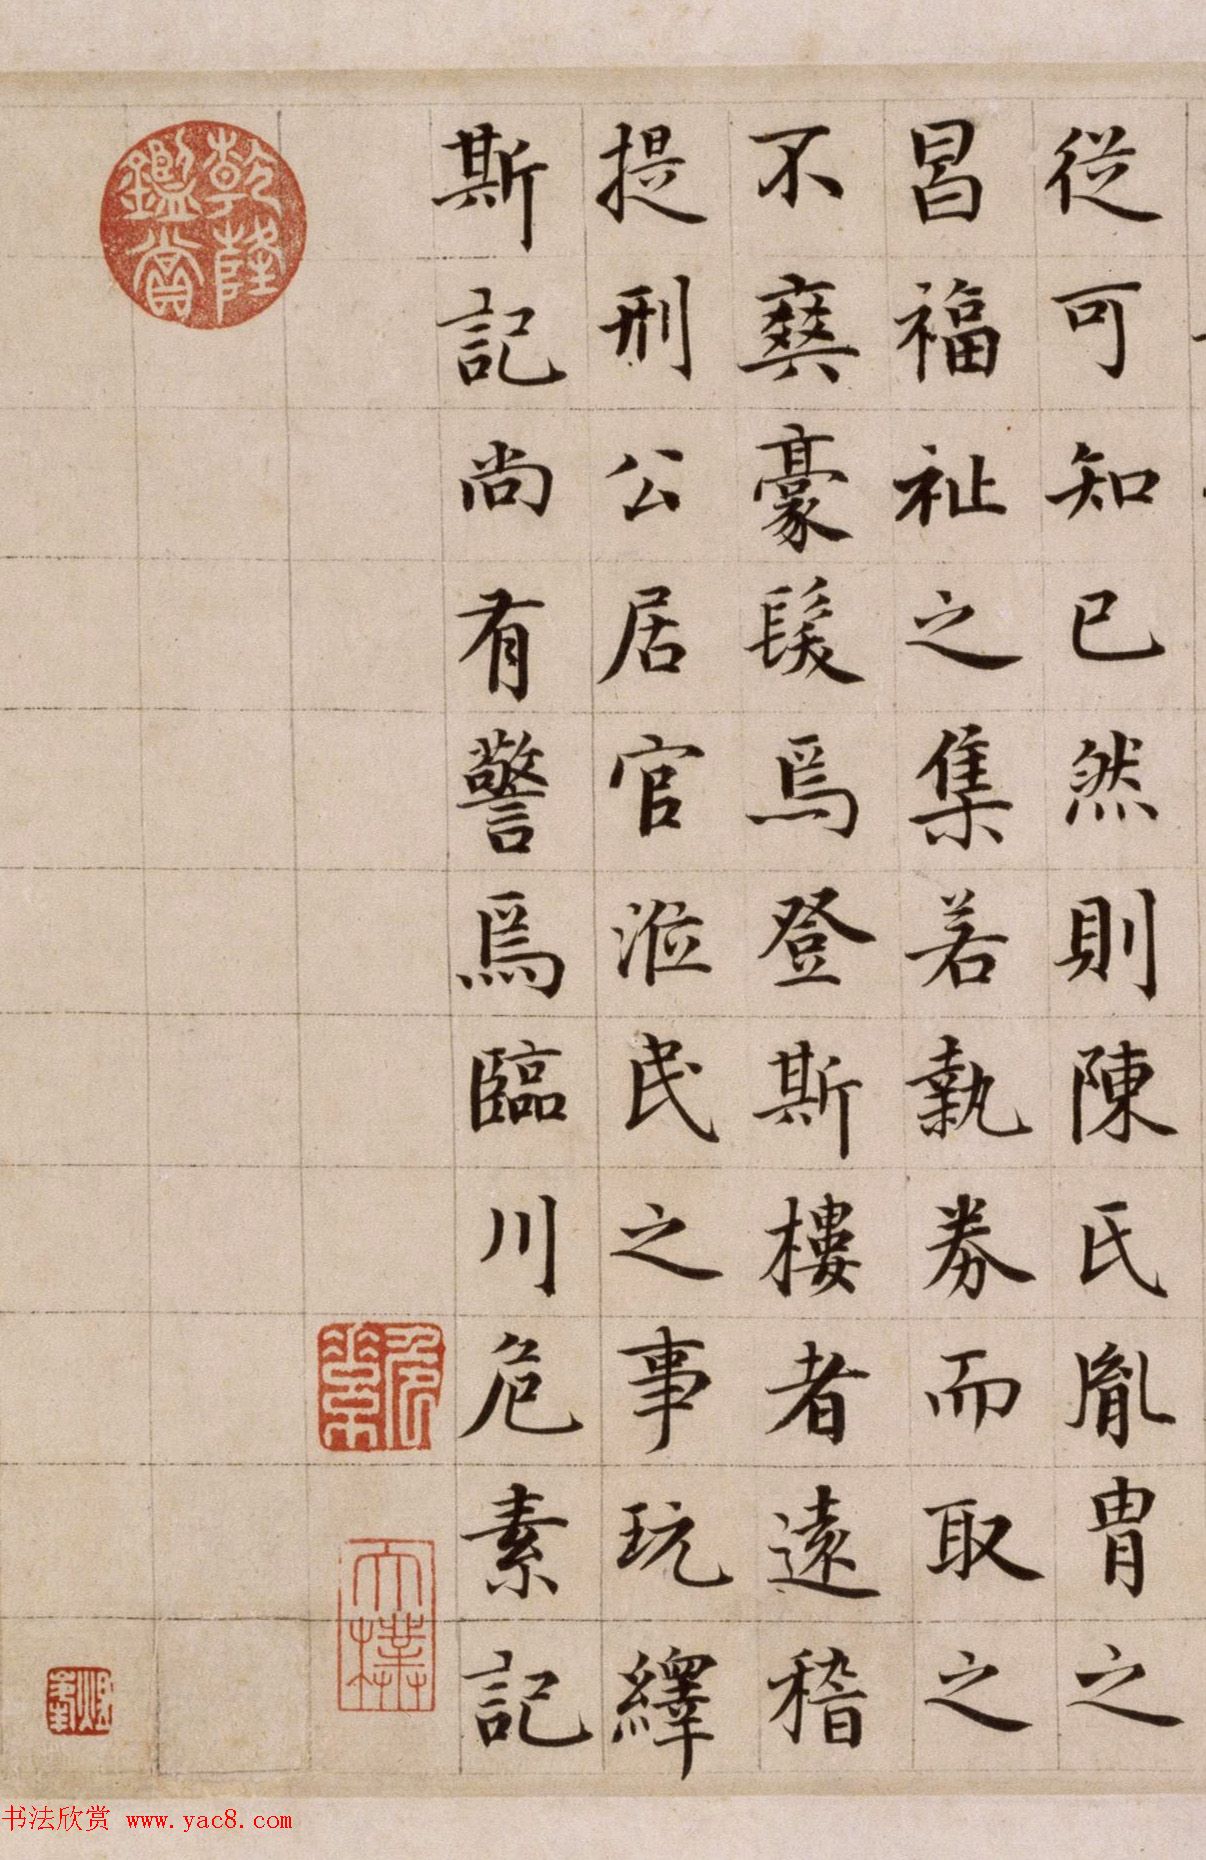 從可知已然則陳氏胤胄之
昌福祉之集若執券而取之
不爽豪髮焉登斯樓者遠稽
提刑公居官涖民之事玩繹
斯記尚有警焉臨川危素記
乾隆鑑賞
危素
太樸
书法欣赏 www.yac8.com